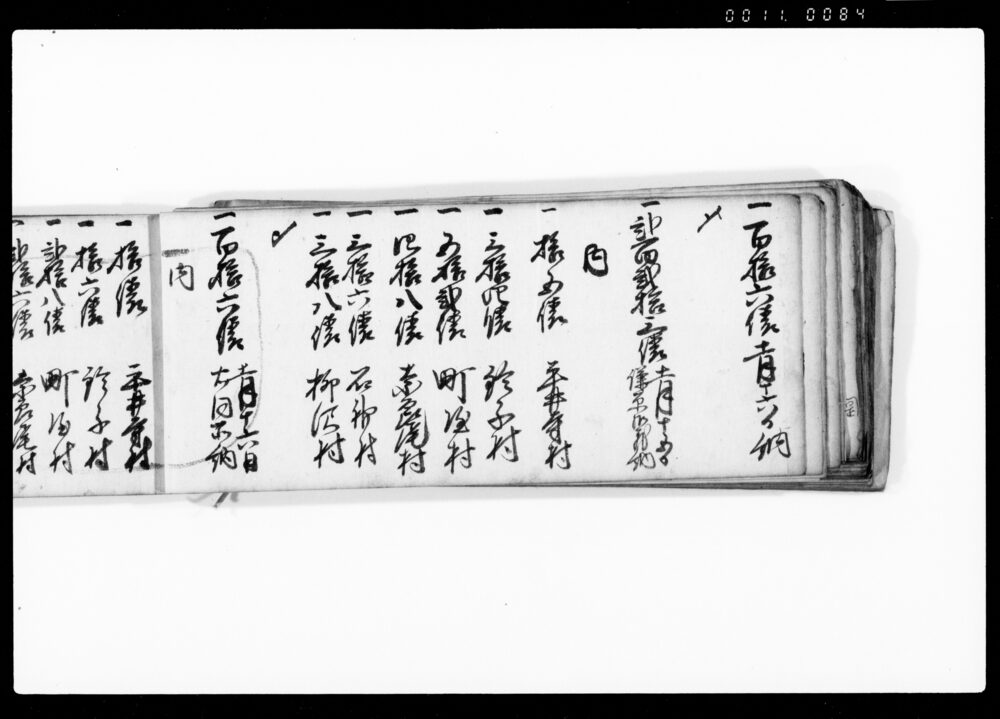 0011. 0084
一 百拾六俵 十一月十六日納
一 弐百弐拾三俵 十一月十五日
納
内
一 拾五俵 平井寺村
一 三拾四俵 鈴子村
一 五拾弐俵 町屋村
一 四拾八俵 奈良尾村
一 三拾六俵 石神村
一 三拾八俵 柳沢村
一 百拾六俵 十一月十六日
納
内
一 拾俵 平井寺村
一 拾六俵 鈴子村
一 弐拾八俵 町屋村
一 弐拾六俵 奈良尾村